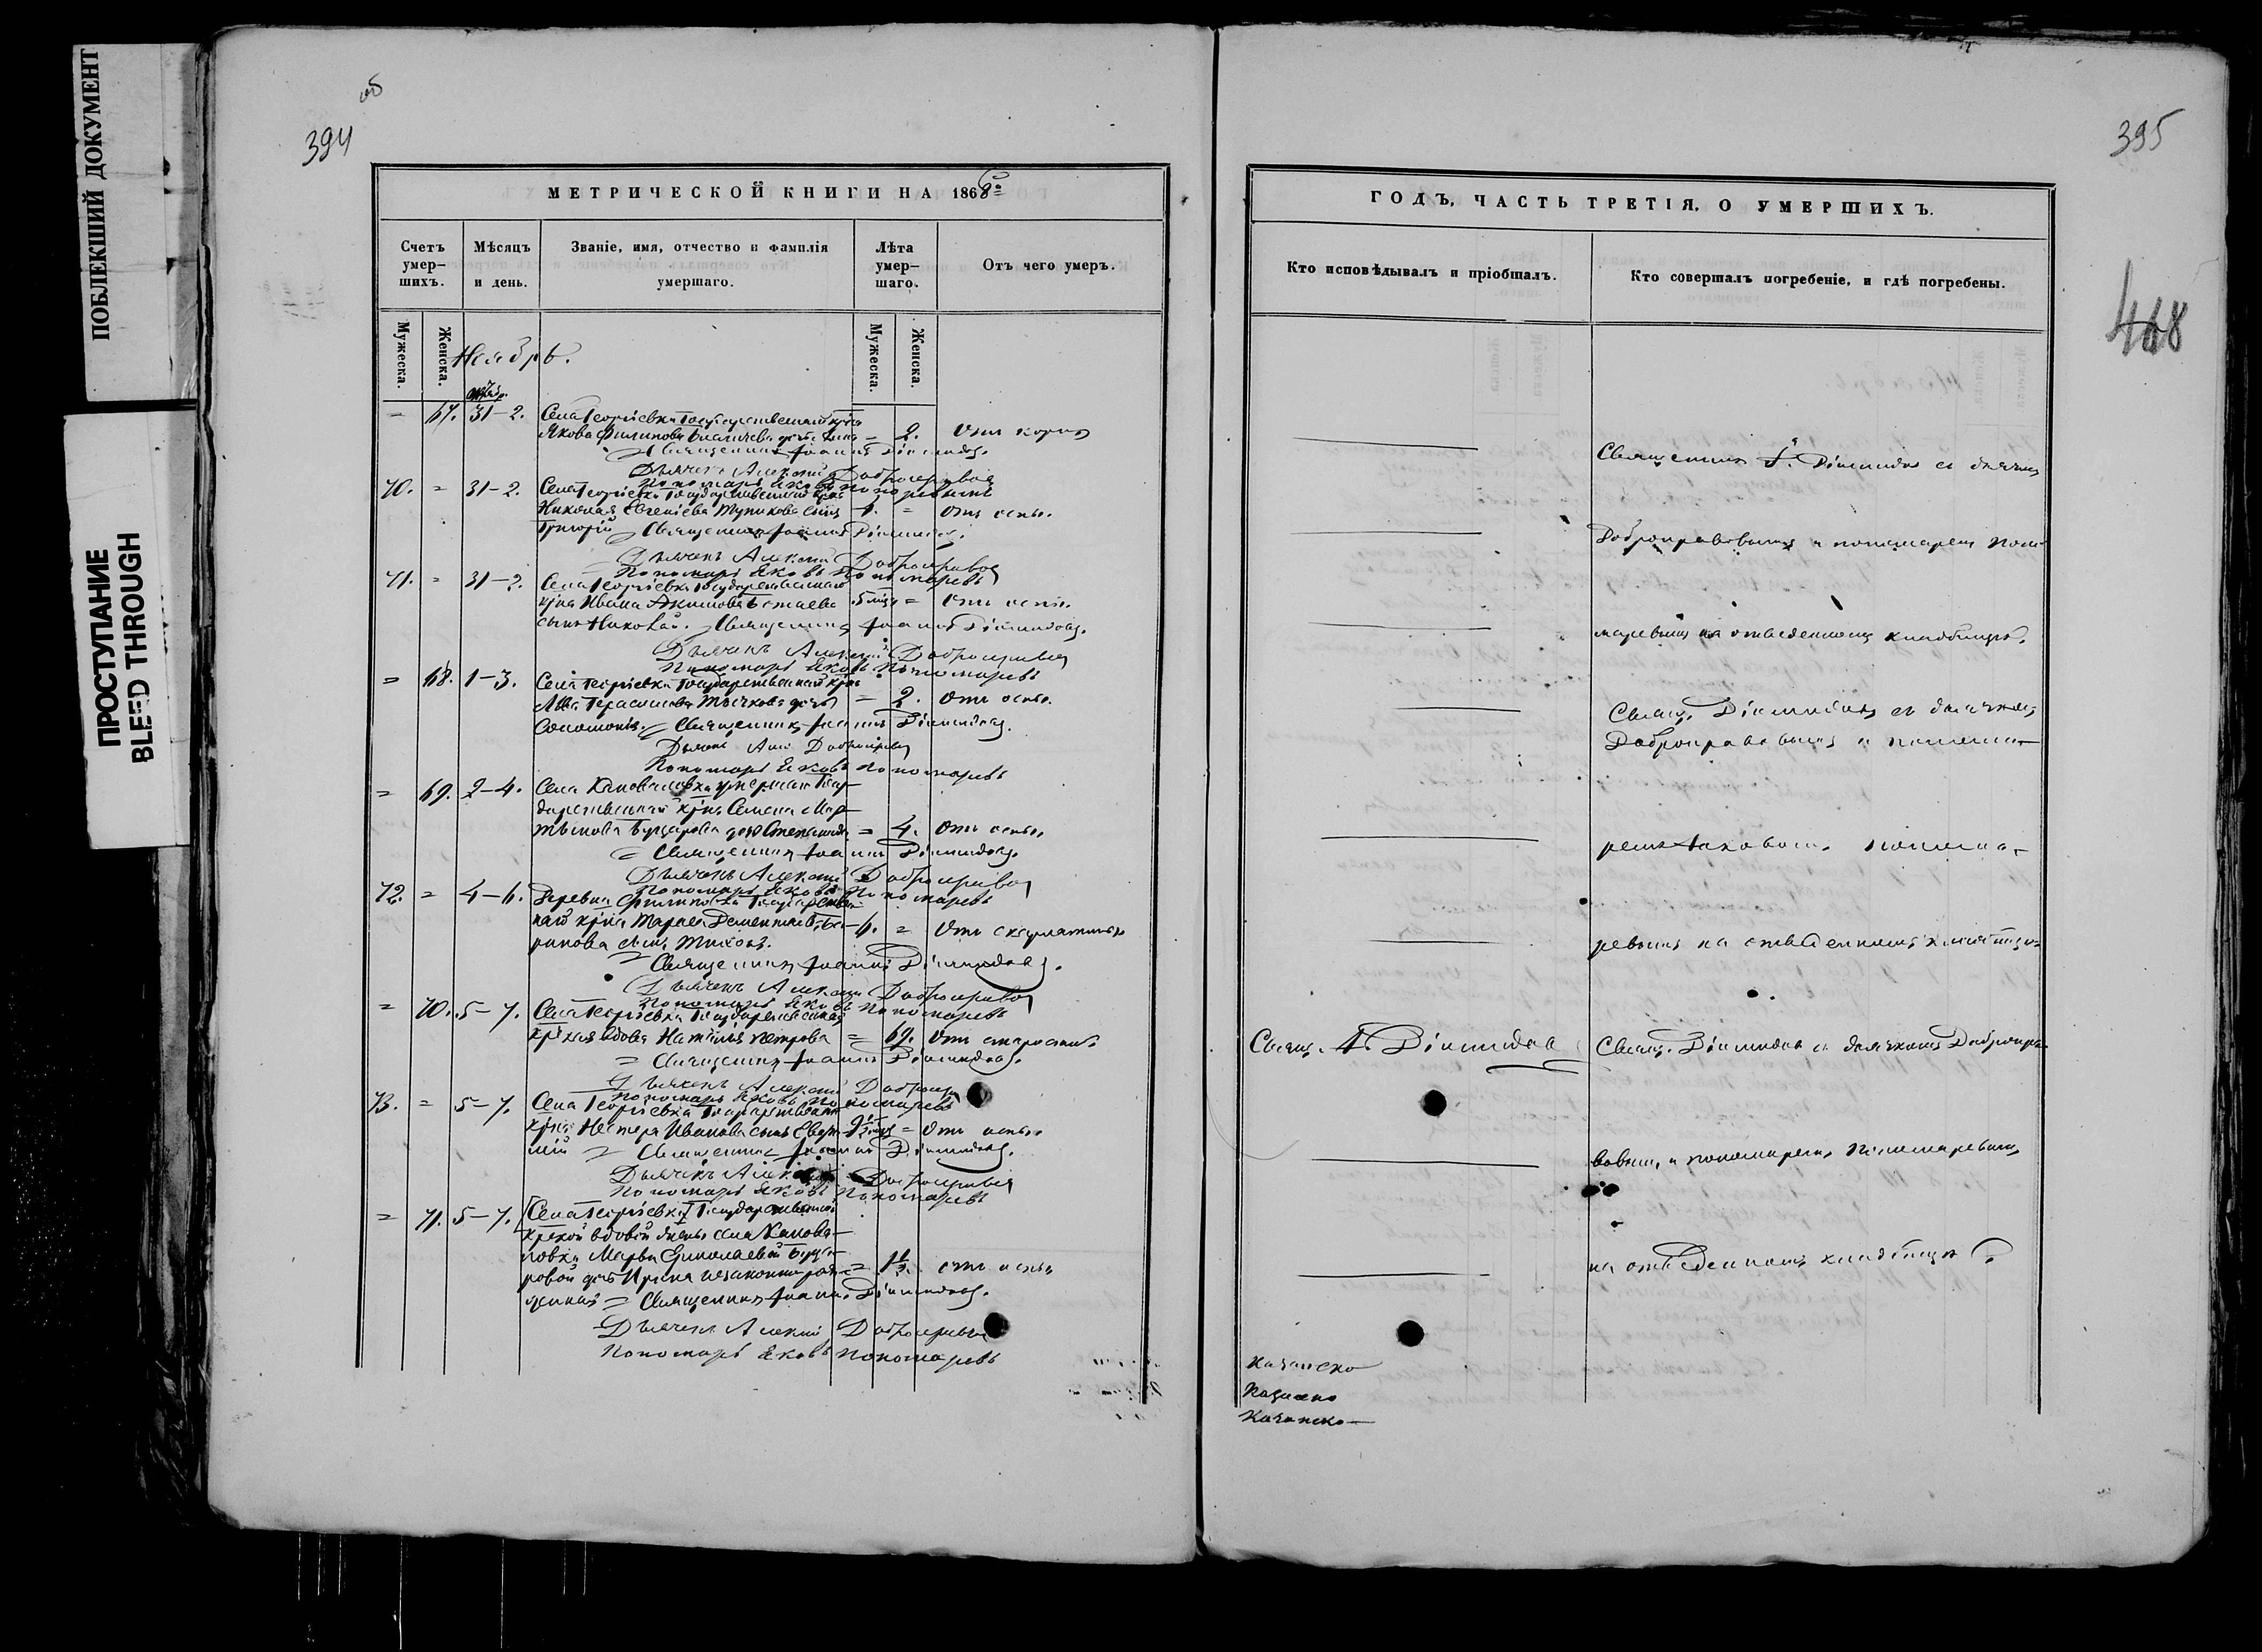 ПОБЛЕКШИЙ ДОКУМЕНТ
ПРОСТУПАНИЕ
BLEED THROUGH
об
394
МЕТРИЧЕСКОЙ КНИГИ НА 1868й
Счетъ умер-шихъ.
Мѣсяцъ и день.
Званіе, имя, отчество и фамилія умершаго.
Лѣта умер-шаго.
Отъ чего умеръ.
Мужеска.
Женска.
Мужеска.
Женска.
Ноябрь.
= 67. 31-2. Села Георгіевки Государственнаго крна
Якова Филипова дочь = 2. Отъ кори
Священникъ Іоаннъ Діомидовъ.
Дьячекъ Алексій Доброправовъ
Пономарь Яковъ Пономаревъ
70. = 31-2. Села Георгіевки Государственнаго крна
Николая Евгеніева Тупикова сынъ 1. = Отъ оспы.
Григорій Священникъ Іоаннъ Діомидовъ.
Дьячекъ Алексій Доброправовъ
Пономарь Яковъ Пономаревъ
71. = 31-2. Села Георгіевки Государственнаго
крна Ивана Акимова сынъ Николай. 5 мцъ = Отъ оспы.
Священникъ Іоаннъ Діомидовъ.
Дьячекъ Алексій Доброправовъ
Пономарь Яковъ Пономаревъ
= 68. 1-3. Села Георгіевки Государственнаго крна
Льва Герасимова дочь = 2. Отъ оспы.
Соломонія Священникъ Іоаннъ Діомидовъ.
Дьячекъ Алек Доброправовъ
Пономарь Яковъ Пономаревъ
= 69. 2-4. Села Коноваловки Госу-
дарственнаго крна Семена Мар-
тынова дочь Степанида = 4. Отъ оспы.
= Священникъ Іоаннъ Діомидовъ.
Дьячекъ Алексій Доброправовъ
Пономарь Яковъ Пономаревъ
72. = 4-6. Деревни Филиповки Государствен-
наго крна Дементьева 6. = Отъ скарлатины
сынъ Тихонъ.
= Священникъ Іоаннъ Діомидовъ.
Дьячекъ Алексій Доброправовъ
Пономарь Яковъ Пономаревъ
= 70. 5-7. Села Георгіевки Государственная
крская вдова Наталія Петрова = 69. Отъ старости.
= Священникъ Іоаннъ Діомидовъ.
Дьячекъ Алексій Доброправовъ
Пономарь Яковъ Пономаревъ
73. = 5-7. Села Георгіевки Государственнаго
крна Нестера Иванова сынъ = Отъ оспы.
= Священникъ Іоаннъ Діомидовъ.
Дьячекъ Алексій Доброправовъ
Пономарь Яковъ Пономаревъ
= 71. 5-7. Села Георгіевки Государственной
крской вдовой села Конова-
ловки Марѳы Ермолаевой
дочь Ирина незаконнорож- = 1½. отъ оспы
денная = Священникъ Іоаннъ Діомидовъ.
Дьячекъ Алексій Доброправовъ
Пономарь Яковъ Пономаревъ
395
468
ГОДЪ, ЧАСТЬ ТРЕТІЯ, О УМЕРШИХЪ.
Кто исповѣдывалъ и пріобщалъ.
Кто совершалъ погребеніе, и гдѣ погребены.
Священникъ І. Діомидовъ съ дьячкомъ
Доброправовымъ и пономаремъ Поно-
маревымъ на отведенномъ кладбищѣ.
Свящ. Діомидовъ съ дьячкомъ
Доброправовымъ и понома-
ремъ Яковомъ Понома-
ревымъ на отведенномъ кладбищѣ
Свящ. І. Діомидовъ
Свящ. Діомидовъ съ дьячкомъ Добропра-
вовымъ и пономаремъ Пономаревымъ
на отведенномъ кладбищѣ.
Казанско
Казанско
Казанско